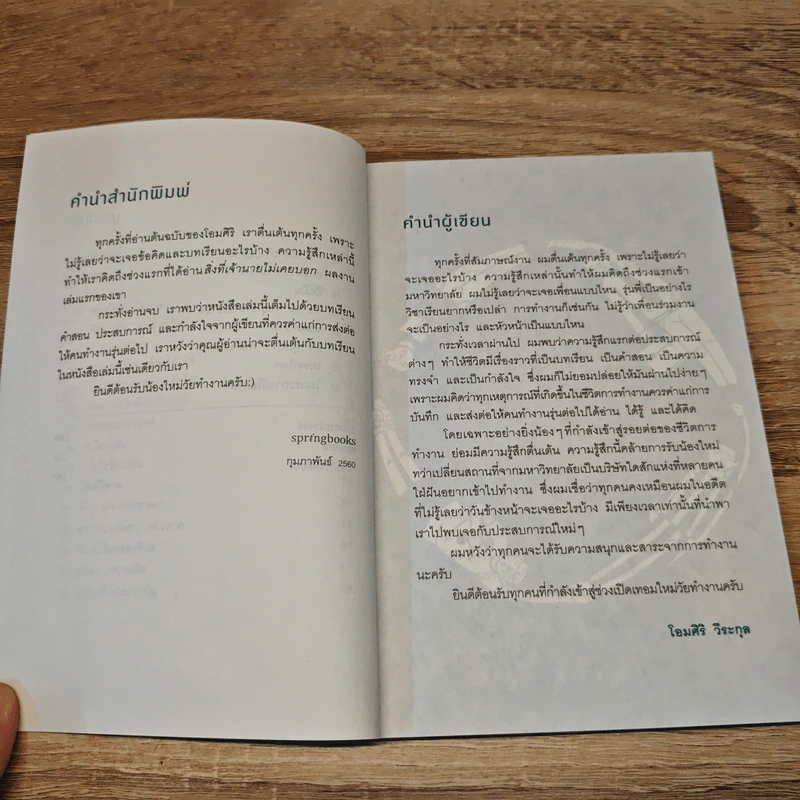 คำนำสำนักพิมพ์
ทุกครั้งที่อ่านต้นฉบับของโอมศิริ เราตื่นเต้นทุกครั้ง เพราะ
ไม่รู้เลยว่าจะเจอข้อคิดและบทเรียนอะไรบ้าง ความรู้สึกเหล่านี้
ทำให้เราคิดถึงช่วงแรกที่ได้อ่าน สิ่งที่เจ้านายไม่เคยบอก ผลงาน
เล่มแรกของเขา
กระทั่งอ่านจบ เราพบว่าหนังสือเล่มนี้เต็มไปด้วยบทเรียน
คำสอน ประสบการณ์ และกำลังใจจากผู้เขียนที่ควรค่าแก่การส่งต่อ
ให้คนทำงานรุ่นต่อไป เราหวังว่าคุณผู้อ่านน่าจะตื่นเต้นกับบทเรียน
ในหนังสือเล่มนี้เช่นเดียวกับเรา
ยินดีต้อนรับน้องใหม่วัยทำงานครับ:)
springbooks
กุมภาพันธ์ 2560
คำนำผู้เขียน
ทุกครั้งที่สัมภาษณ์งาน ผมตื่นเต้นทุกครั้ง เพราะไม่รู้เลยว่า
จะเจออะไรบ้าง ความรู้สึกเหล่านั้นทำให้ผมคิดถึงช่วงแรกเข้า
มหาวิทยาลัย ผมไม่รู้เลยว่าจะเจอเพื่อนแบบไหน รุ่นพี่เป็นอย่างไร
วิชาเรียนยากหรือเปล่า การทำงานก็เช่นกัน ไม่รู้ว่าเพื่อนร่วมงาน
จะเป็นอย่างไร และหัวหน้าเป็นแบบไหน
กระทั่งเวลาผ่านไป ผมพบว่าความรู้สึกแรกต่อประสบการณ์
ต่างๆ ทำให้ชีวิตมีเรื่องราวที่เป็นบทเรียน เป็นคำสอน เป็นความ
ทรงจำ และเป็นกำลังใจ ซึ่งผมก็ไม่ยอมปล่อยให้มันผ่านไปง่ายๆ
เพราะผมคิดว่าทุกเหตุการณ์ที่เกิดขึ้นในชีวิตการทำงานควรค่าแก่การ
บันทึก และส่งต่อให้คนทำงานรุ่นต่อไปได้อ่าน ได้รู้ และได้คิด
โดยเฉพาะอย่างยิ่งน้องๆ ที่กำลังเข้าสู่รอยต่อของชีวิตการ
ทำงาน ย่อมมีความรู้สึกตื่นเต้น ความรู้สึกนี้คล้ายการรับน้องใหม่
ทว่าเปลี่ยนสถานที่จากมหาวิทยาลัยเป็นบริษัทใดสักแห่งที่หลายคน
ใฝ่ฝันอยากเข้าไปทำงาน ซึ่งผมเชื่อว่าทุกคนคงเหมือนผมในอดีต
ที่ไม่รู้เลยว่าวันข้างหน้าจะเจออะไรบ้าง มีเพียงเวลาเท่านั้นที่นำพา
เราไปพบเจอกับประสบการณ์ใหม่ๆ
ผมหวังว่าทุกคนจะได้รับความสนุกและสาระจากการทำงาน
นะครับ
ยินดีต้อนรับทุกคนที่กำลังเข้าสู่ช่วงเปิดเทอมใหม่วัยทำงานครับ
โอมศิริ วีระกุล